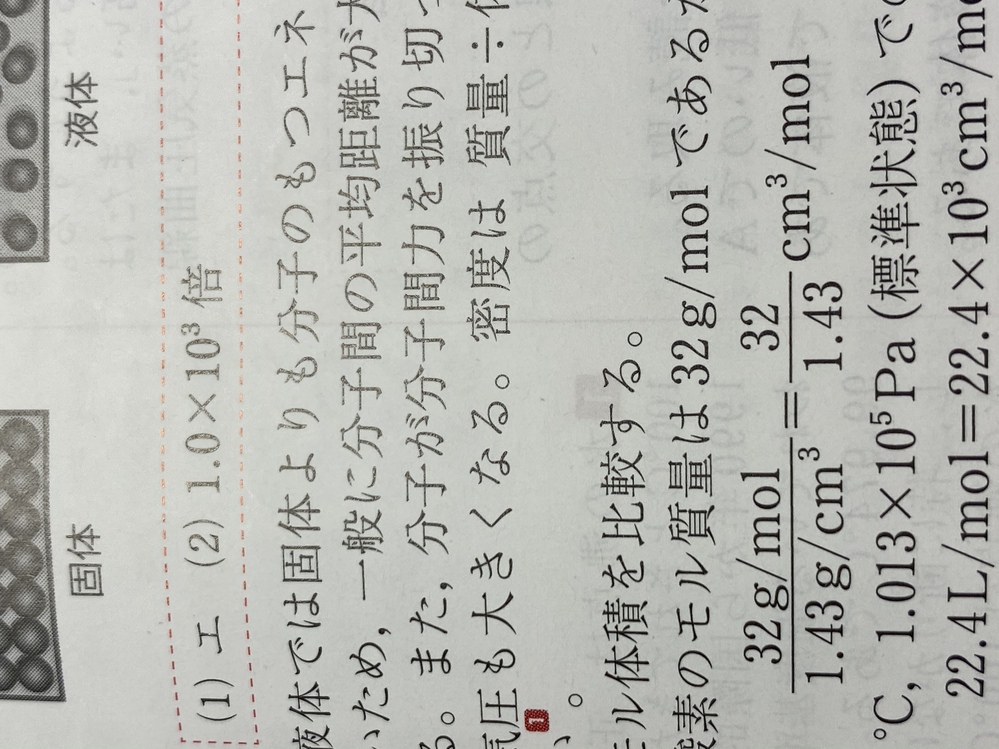 固体
液体
(1) エ (2) 1.0×10³倍
液体では固体よりも分子のもつエネ
いため，一般に分子間の平均距離が大
る。また，分子が分子間力を振り切っ
気圧も大きくなる。密度は 質量÷体
1
い。
モル体積を比較する。
酸素のモル質量は32g/molであるか
32g/mol / 1.43g/cm³ = 32 / 1.43 cm³/mol
℃，1.013×10⁵Pa（標準状態）での
22.4L/mol=22.4×10³cm³/mo